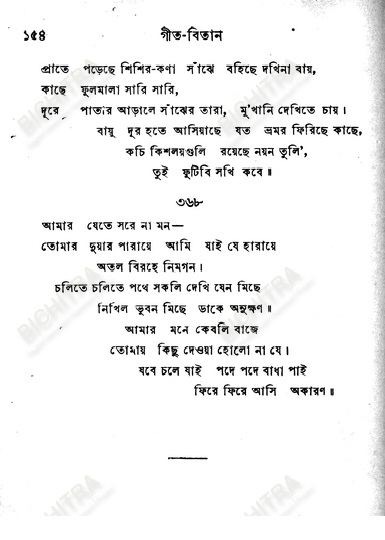 ১৫৪ গীত-বিতান
প্রাতে পড়েছে শিশির-কণা সাঁঝে বহিছে দখিনা বায়,
কাছে ফুলমালা সারি সারি,
দূরে পাতার আড়ালে সাঁঝের তারা, মু'খানি দেখিতে চায়।
বায়ু দূর হতে আসিয়াছে যত ভ্রমর ফিরিছে কাছে,
কচি কিশলয়গুলি রয়েছে নয়ন তুলি',
তুই ফুটিবি সখি কবে॥
৩৬৮
আমার যেতে সরে না মন—
তোমার দুয়ার পারায়ে আমি যাই যে হারায়ে
অতল বিরহে নিমগন।
চলিতে চলিতে পথে সকলি দেখি যেন মিছে
নিখিল ভুবন মিছে ডাকে অনুক্ষণ॥
আমার মনে কেবলি বাজে
তোমায় কিছু দেওয়া হোলো না যে।
যবে চলে যাই পদে পদে বাধা পাই
ফিরে ফিরে আসি অকারণ॥
BICHITRA